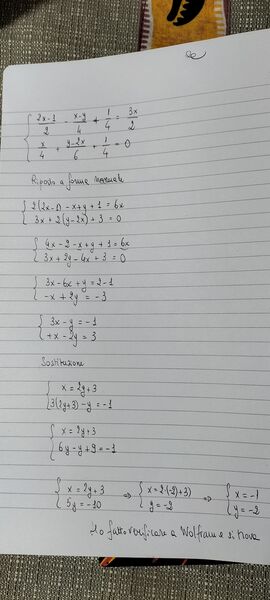 { (2x-1)/2 - (x-y)/4 + 1/4 = 3x/2
{ x/4 + (y-2x)/6 + 1/4 = 0
Riporto a forma normale
{ 2(2x-1) -x+y+1 = 6x
{ 3x+2(y-2x)+3 = 0
{ 4x-2-x+y+1 = 6x
{ 3x+2y-4x+3 = 0
{ 3x-6x+y = 2-1
{ -x+2y = -3
{ 3x-y = -1
{ +x-2y = 3
Sostituzione
{ x = 2y+3
{ 3(2y+3)-y = -1
{ x = 2y+3
{ 6y-y+9 = -1
{ x = 2y+3 ⇒ { x = 2·(-2)+3) ⇒ { x = -1
{ 5y = -10 { y = -2 { y = -2
Ho fatto verificare a Wolfram e si trova